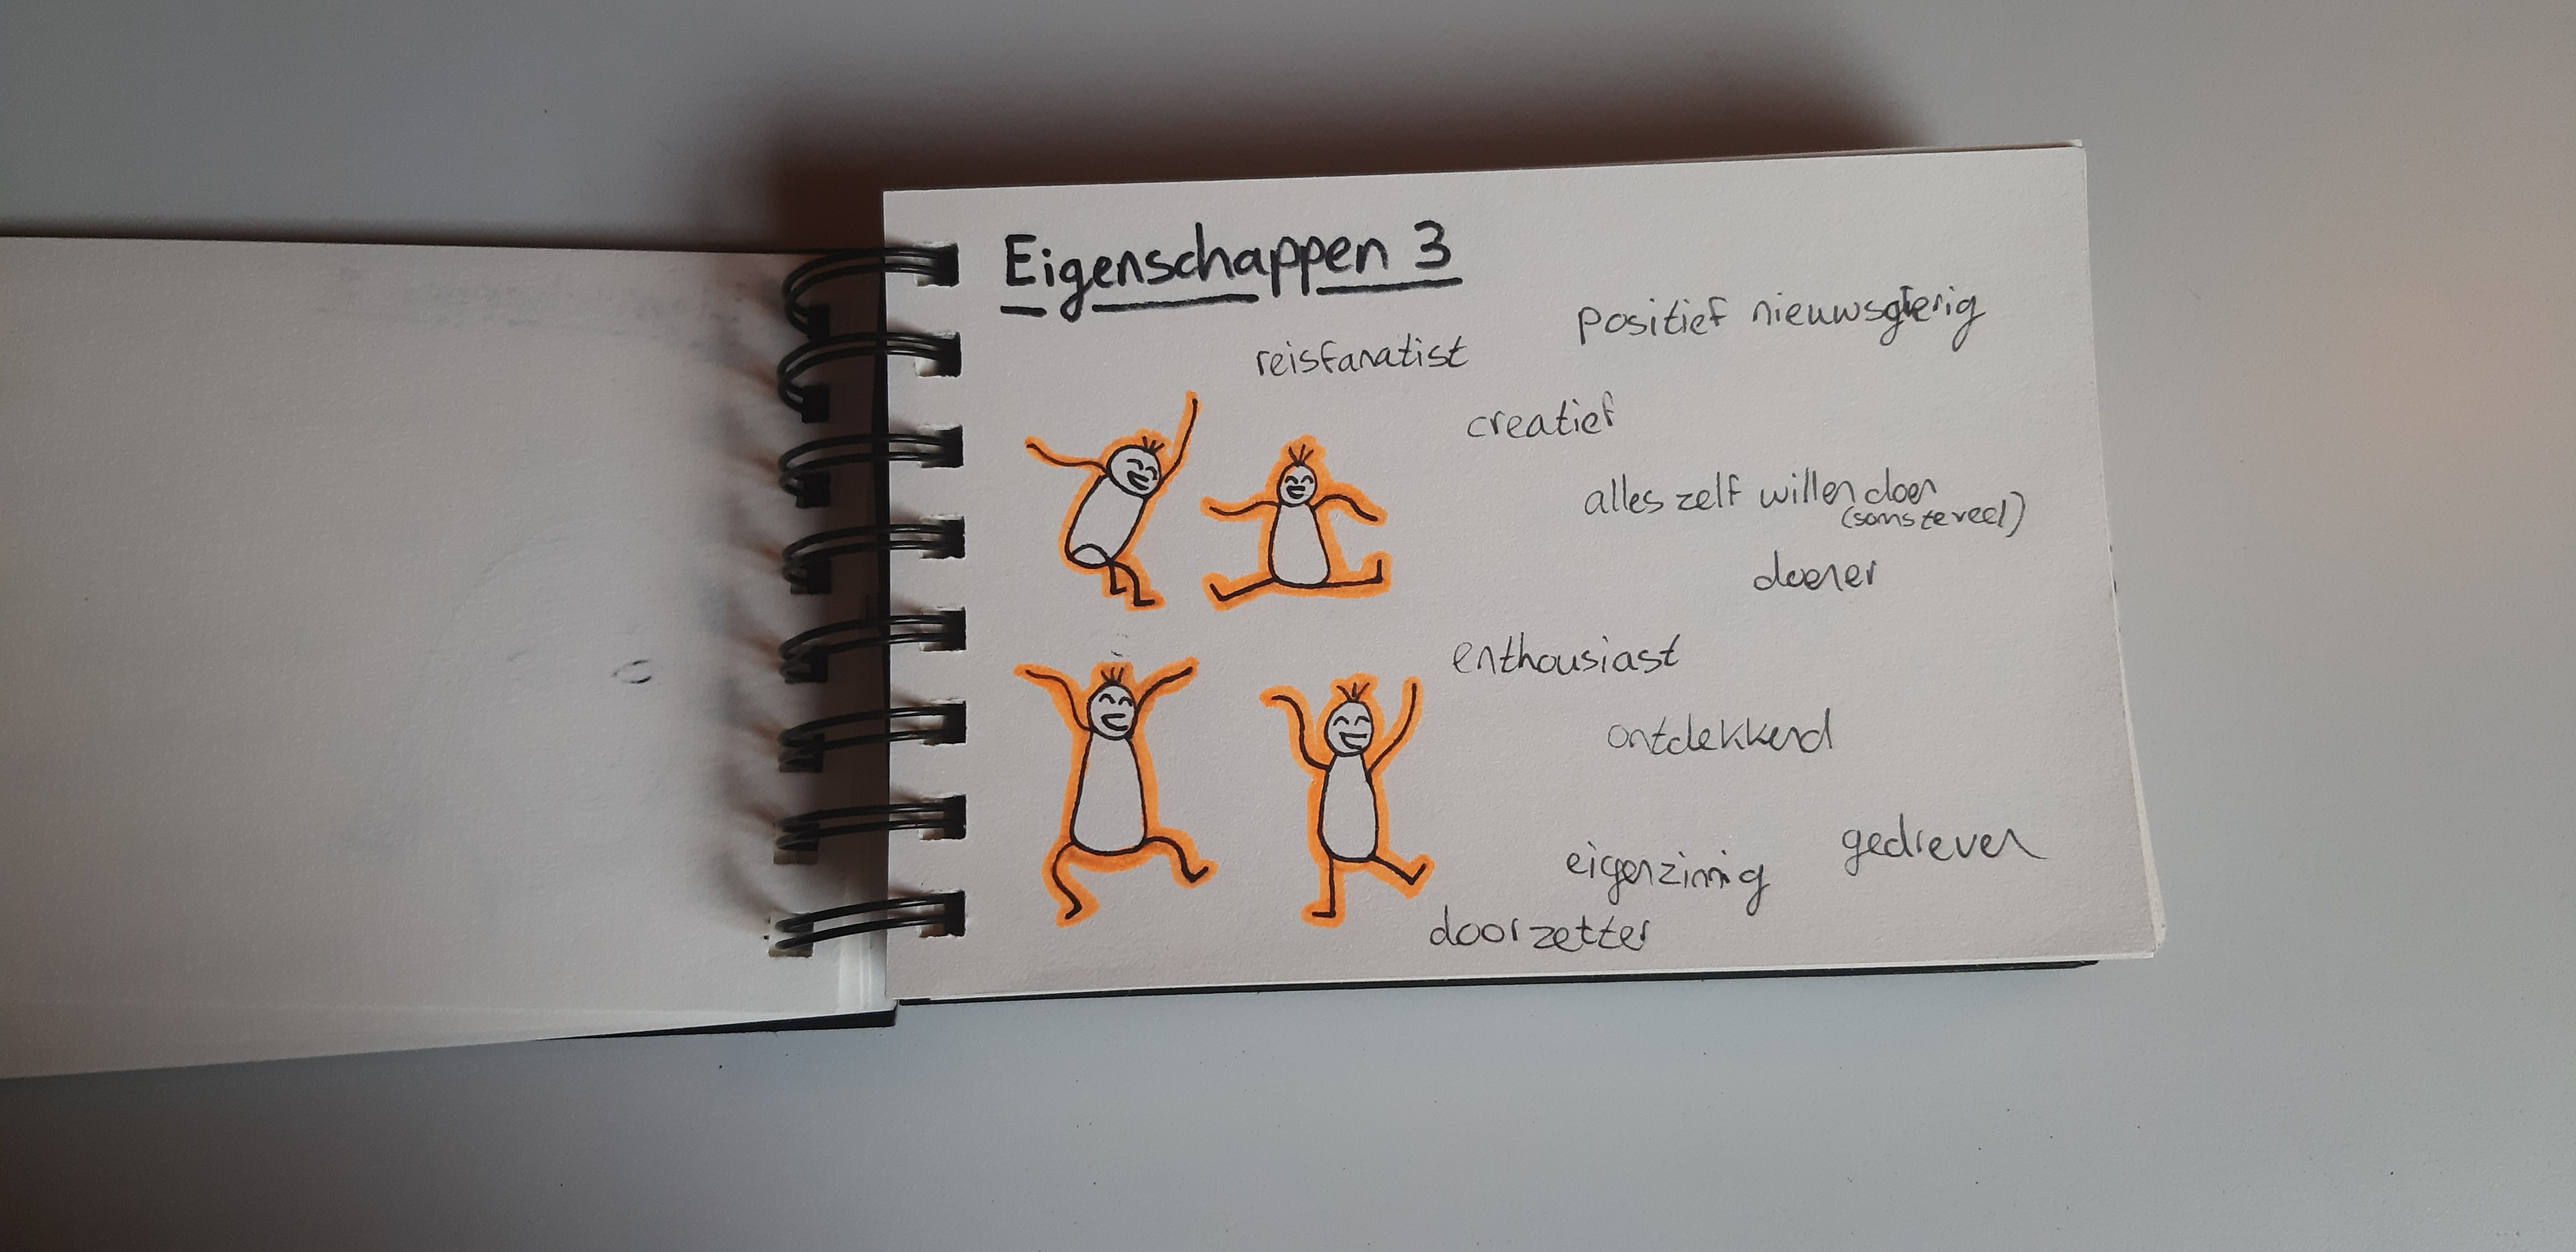 Eigenschappen 3
positief nieuwsgierig
reisfanatist
creatief
alles zelf willen doen
(soms te veel)
doener
enthousiast
ontdekkend
gedreven
eigenzinnig
doorzetter